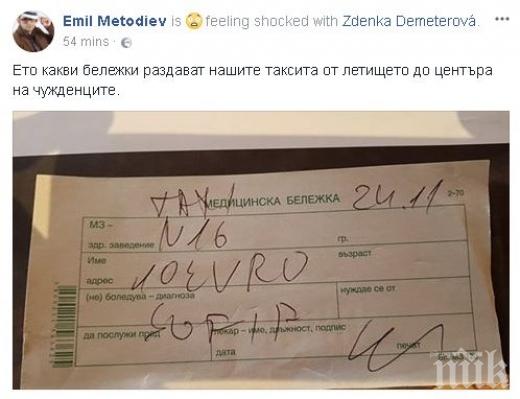 Emil Metodiev is feeling shocked with Zdenka Demeterová.
54 mins ·
Ето какви бележки раздават нашите таксита от летището до центъра
на чужденците.
TAXI
МЕДИЦИНСКА БЕЛЕЖКА 24.11 2-70
МЗ –
здр. заведение N16 гр.
Име възраст
адрес 10 EVRO
(не) боледува – диагноза нуждае се от
SOFIA
да послужи пред лекар – име, длъжност, подпис
дата печат